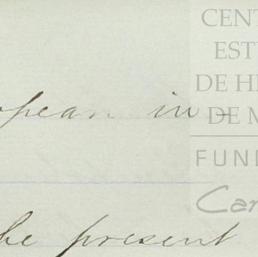 CENT
EST
opean in -
DE HI
DE M
FUND
Car
the present